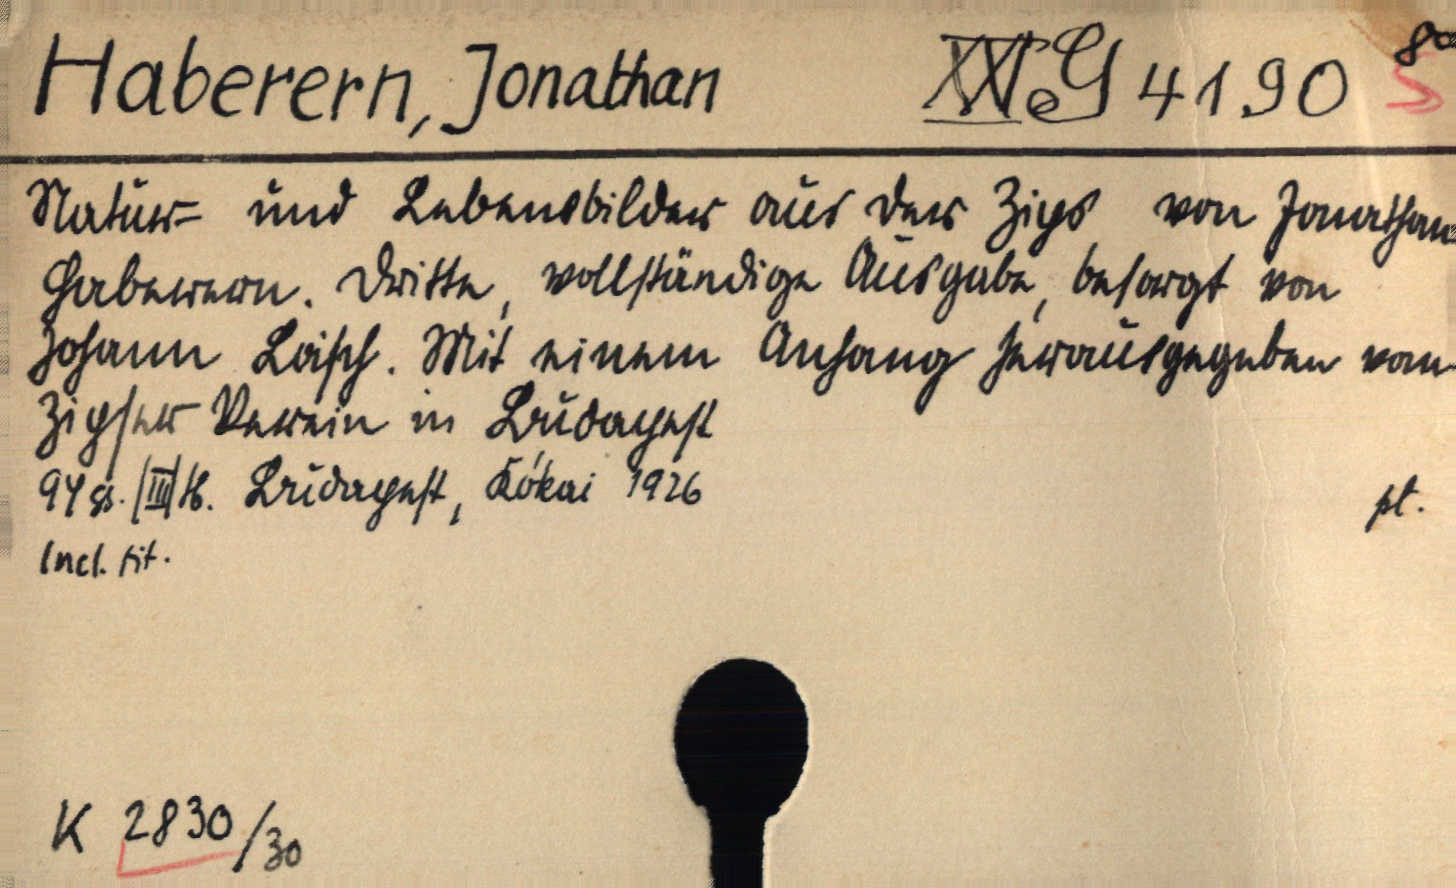 Haberern, Jonathan G 4190 8°
Natur= und Lebensbilder aus der Zips von Jonathan
Haberern. Dritte, vollständige Ausgabe, besorgt von
Johann Loisch. Mit einem Anhang herausgegeben vom
Zipser Verein in Budapest
94 SS. [III] Budapest, Kókai 1926 pl.
Incl. tit.
K 2830/30